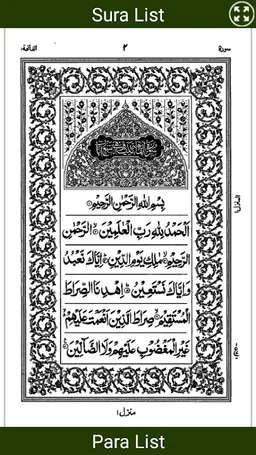 Sura List
سورة ٢ الفاتحة
بِسْمِ اللهِ الرَّحْمٰنِ الرَّحِيْمِ
اَلْحَمْدُ لِلّٰهِ رَبِّ الْعٰلَمِيْنَ الرَّحْمٰنِ
الرَّحِيْمِ مٰلِكِ يَوْمِ الدِّيْنِ اِيَّاكَ نَعْبُدُ
وَاِيَّاكَ نَسْتَعِيْنُ اِهْدِنَا الصِّرَاطَ
الْمُسْتَقِيْمَ صِرَاطَ الَّذِيْنَ اَنْعَمْتَ عَلَيْهِمْ
غَيْرِ الْمَغْضُوْبِ عَلَيْهِمْ وَلَا الضَّآلِّيْنَ
منزل ١
Para List